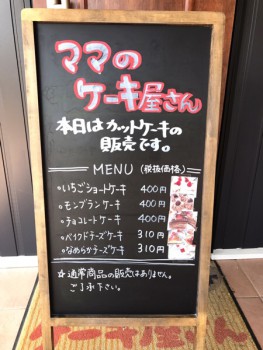 ママの
ケーキ屋さん
本日はカットケーキの
販売です。
MENU (税抜価格)
いちごショートケーキ 400円
モンブランケーキ 400円
チョコレートケーキ 400円
ベイクドチーズケーキ 310円
なめらかチーズケーキ 310円
☆通常商品の販売はありません。
ご了承下さい。
ケーキ屋さん